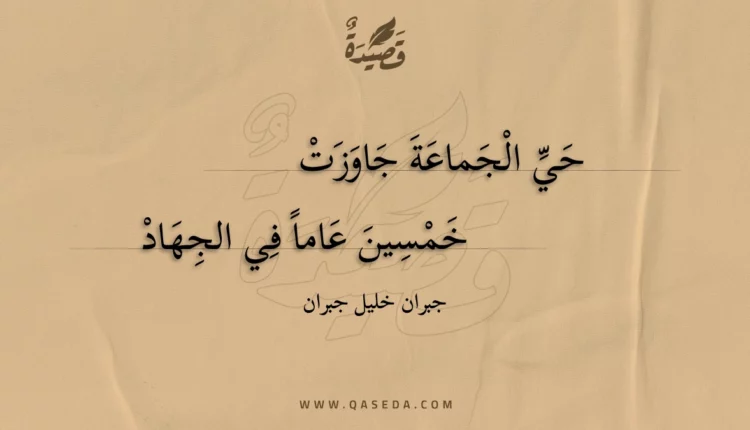 قَصِيدَةٌ
حَيِّ الْجَماعَةَ جَاوَزَتْ
خَمْسِينَ عَاماً فِي الجِهَادْ
جبران خليل جبران
WWW.QASEDA.COM